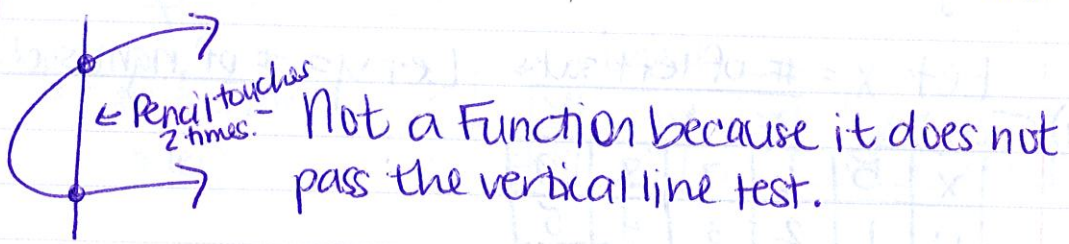 ← Pencil touches
2 times. -
Not a Function because it does not
pass the vertical line test.